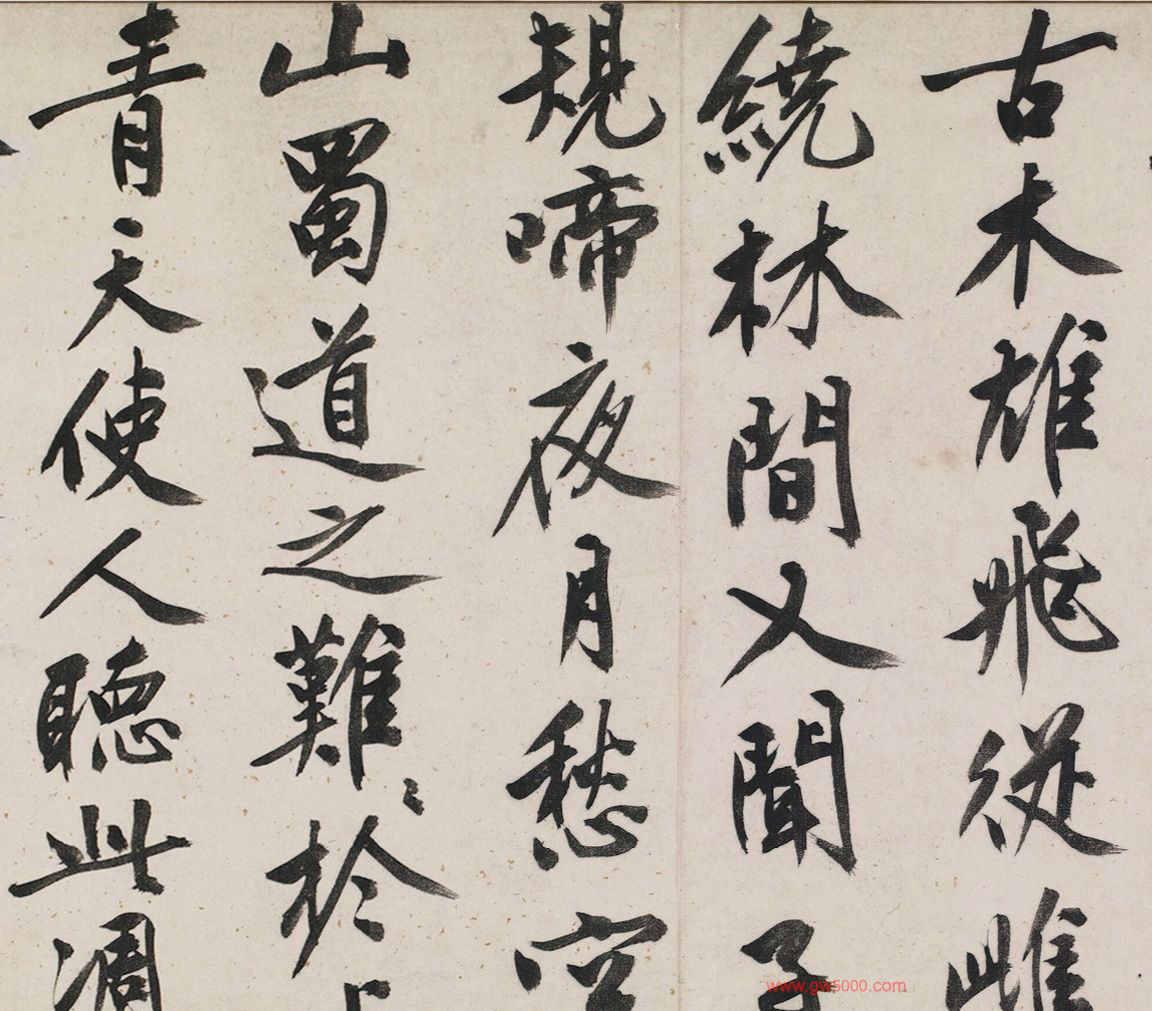 古木雄飛從雌
繞林間又聞子
規啼夜月愁空
山蜀道之難〻於上
青天使人聽此凋
www.gw5000.com